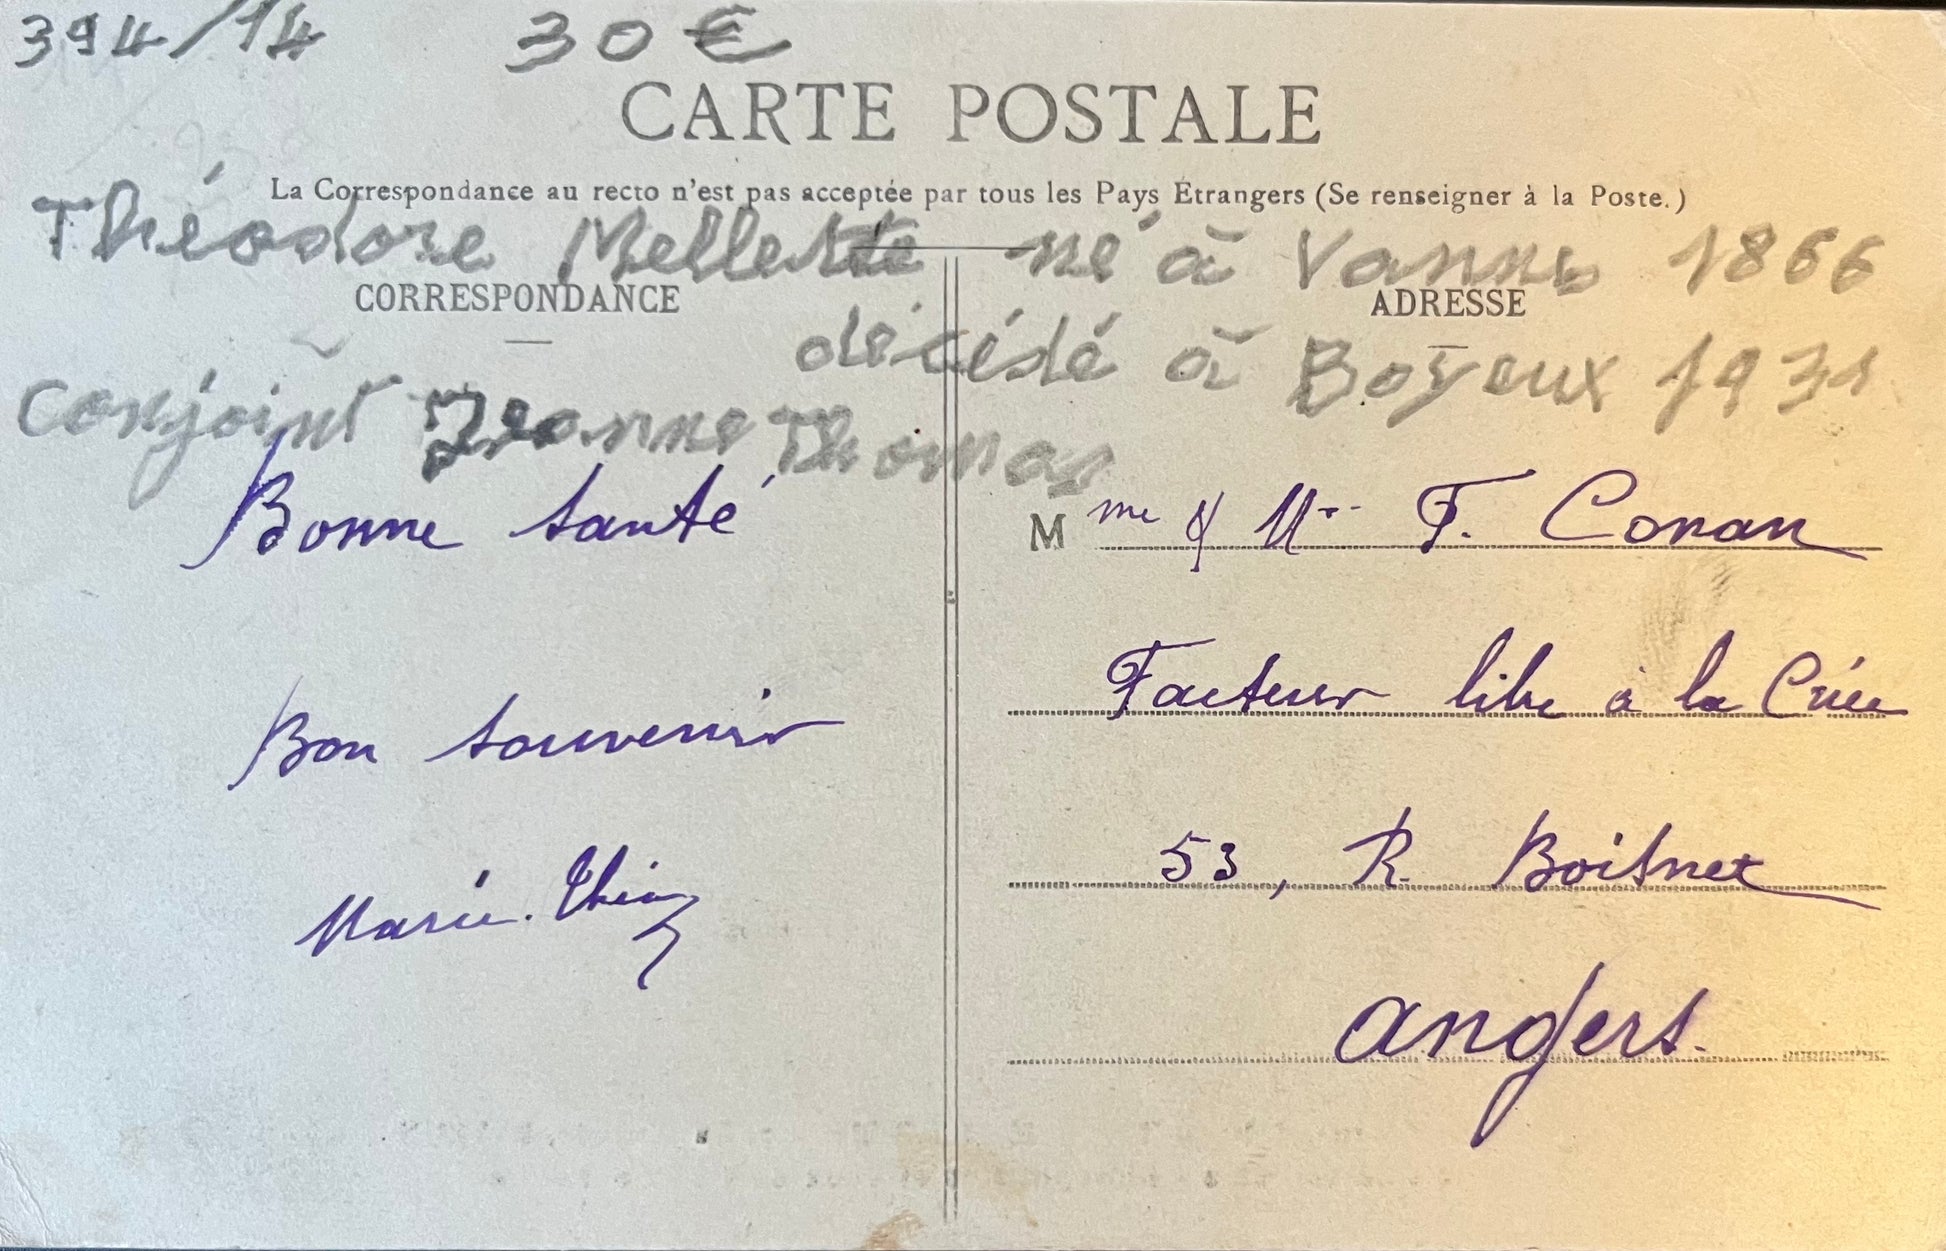 394/14 30 €
CARTE POSTALE
La Correspondance au recto n'est pas acceptée par tous les Pays Étrangers (Se renseigner à la Poste.)
Théodore né à Vannes 1866
décédé à Bayeux 1931
conjoint Jeanne Thomas
CORRESPONDANCE
Bonne santé
Bon souvenir
Marie.
ADRESSE
Mme & Mr. F. Conan
Facteur libre à la Criée
53, R. Boisnet
Angers.